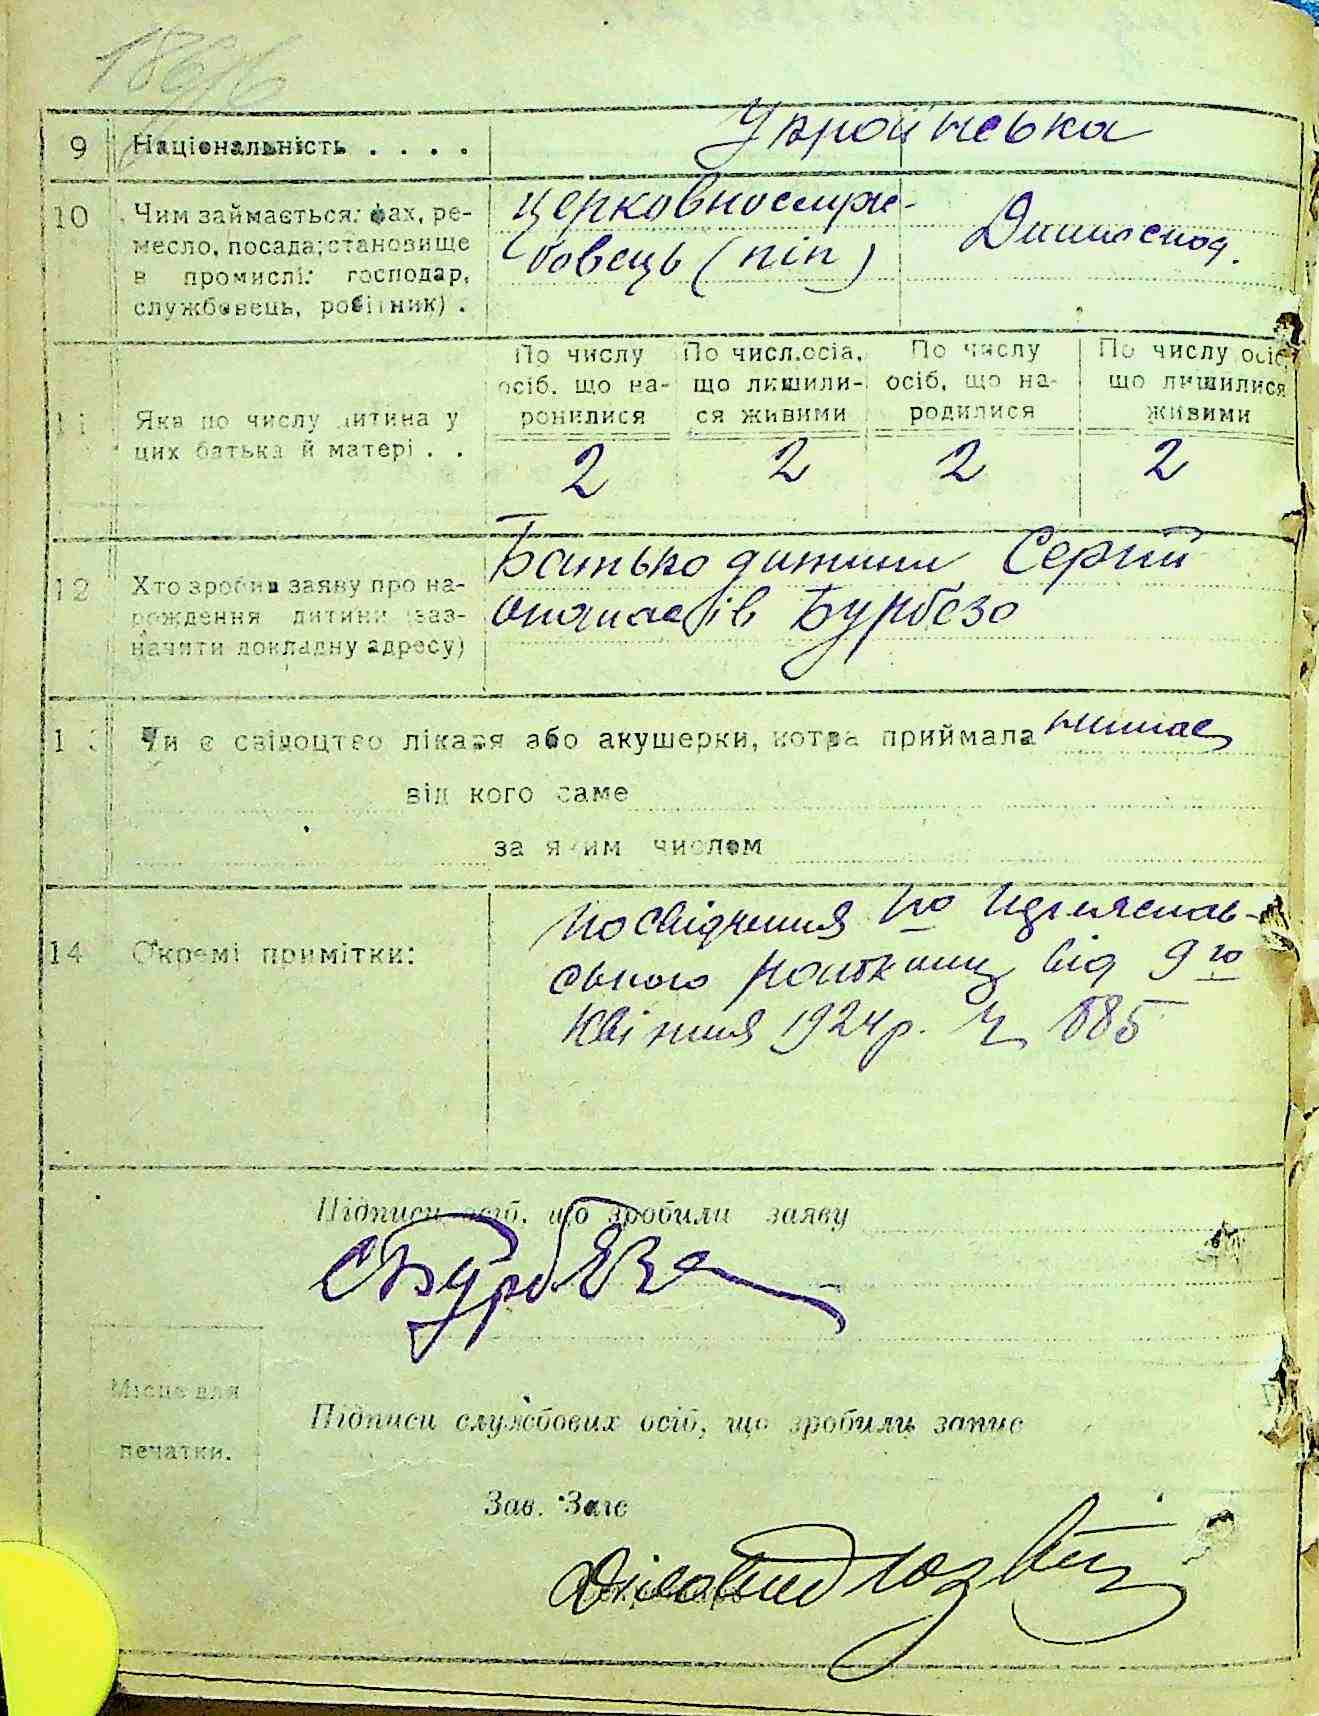 186/6
9 Національність . . . . Українська
10 Чим займається: фах, ре-
месло, посада; становище
в промислі: господар,
службовець, робітник) .
церковнослуж-
бовець (піп)
Домогосп.
По числу осіб, що на-родилися
По числ. осіб, що лишили-ся живими
По числу осіб, що на-родилися
По числу осіб, що лишилися живими
11 Яка по числу дитина у
цих батька й матері . .
2 2 2 2
12 Хто зробив заяву про на-
рождення дитини (заз-
начити докладну адресу)
Батько дитини Сергій
Бурбезо
13 Чи є свідоцтво лікаря або акушерки, котра приймала немає
від кого саме
за яким числом
14 Окремі примітки:
посвідчення
від 9го
Квітня 1924 р. Ч 885
Підписи осіб, що зробили заяву
Місце для
печатки.
Підписи службових осіб, що зробили запис
Зав. Загс